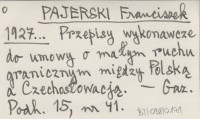 PAJERSKI Franciszek
1927... Przepisy wykonawcze
do umowy o małym ruchu
granicznym między Polską
a Czechosłowacją. — Gaz.
Podh. 15, nr 41.